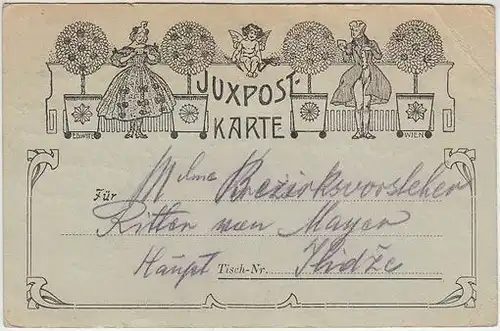 JUXPOST-
KARTE
WIEN
Für Mdme Bezirksvorsteher
Ritter von Mayer
Haupt Tisch-Nr. Ilidže